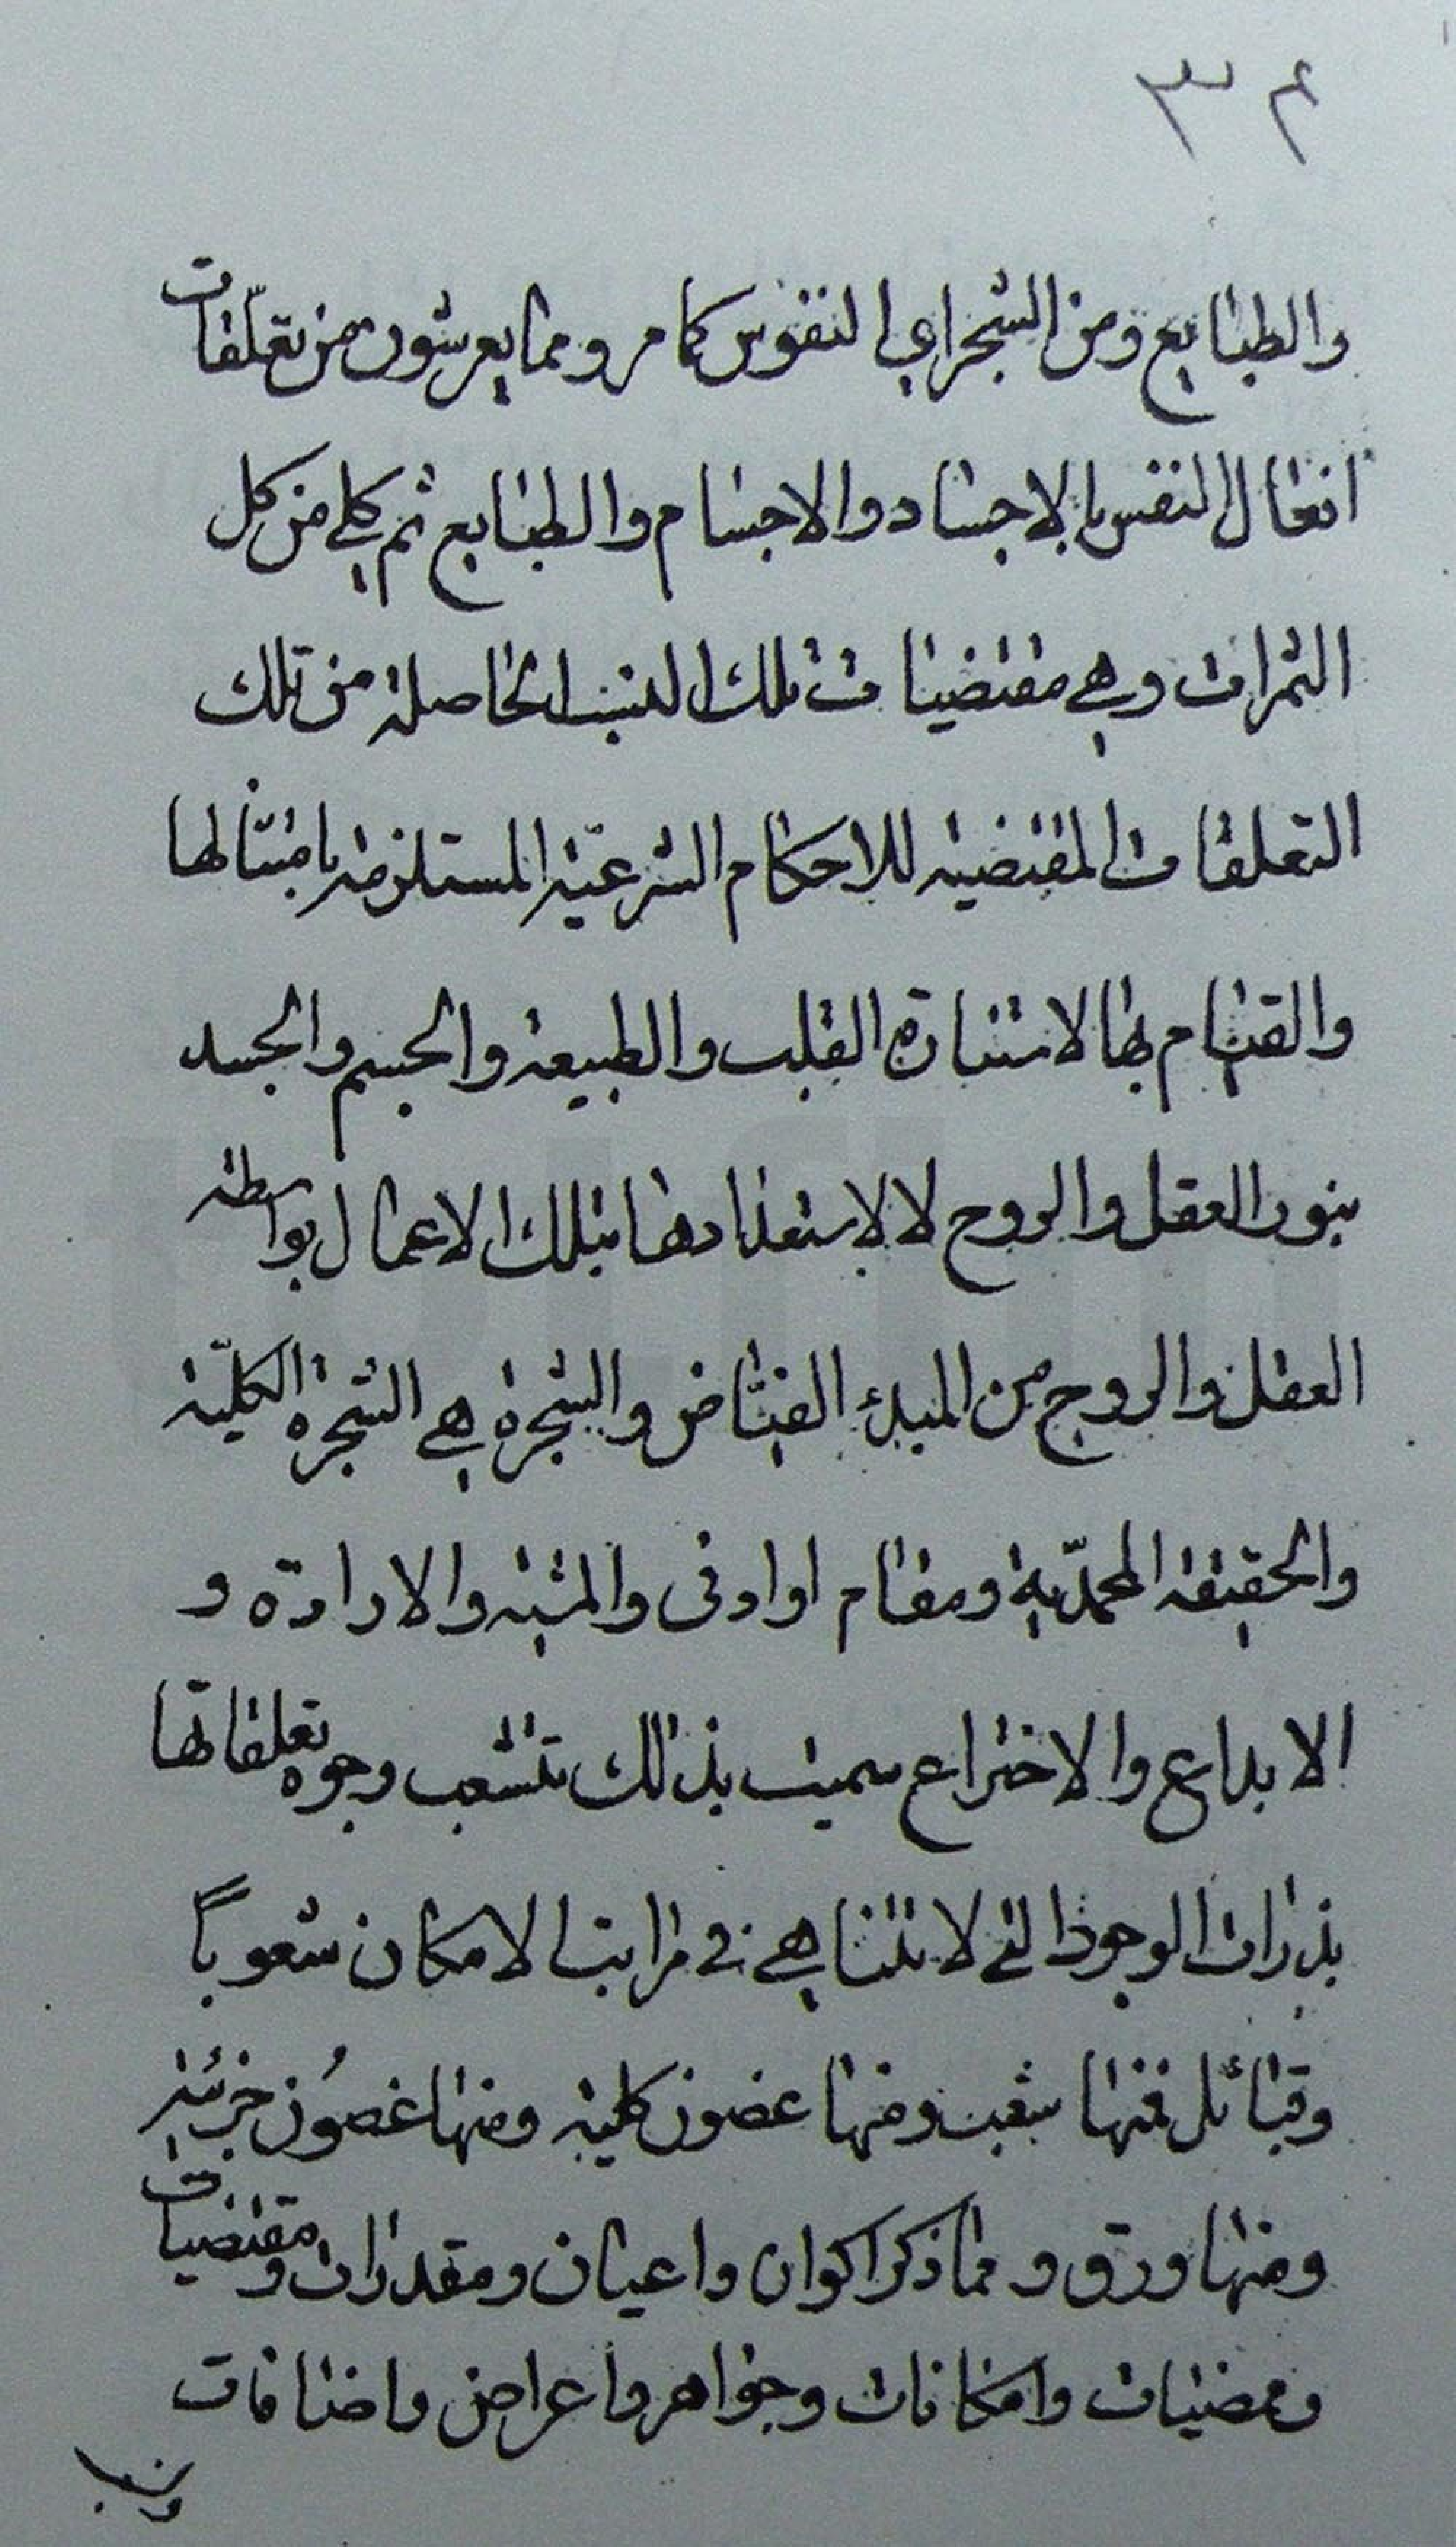 ٣٢
والطبايع ومن الشجر اي النفوس كما مر ومما يعرشون من تعلّقات
افعال النفس بالاجساد والاجسام والطبايع ثم كلي من كل
الثمرات وهي مقتضيات تلك النسب الحاصلة من تلك
التعلقات المقتضية للاحكام الشرعيّة المستلزمة بامتثالها
والقيام بها لاستنارة القلب والطبيعة والجسم والجسد
بنور العقل والروح لا لاستعدادها بتلك الاعمال بواسطة
العقل والروح من المبدء الفيّاض والشجرة هي الشجرة الكليّة
والحقيقة المحمّدية ومقام او ادنى والمشية والارادة و
الابداع والاختراع سميت بذلك لتشعب وجوه تعلقاتها
بذرات الوجود التي لا تتناهي في مراتب الامكان شعوباً
وقبائل فمنها شعب ومنها غصون كلية ومنها غصُون جزئية
ومنها ورق و مما ذكر اكوان واعيان ومقدرات ومقتضيات
وممضيات وامكانات وجواهر واعراض واضافات
ونسب